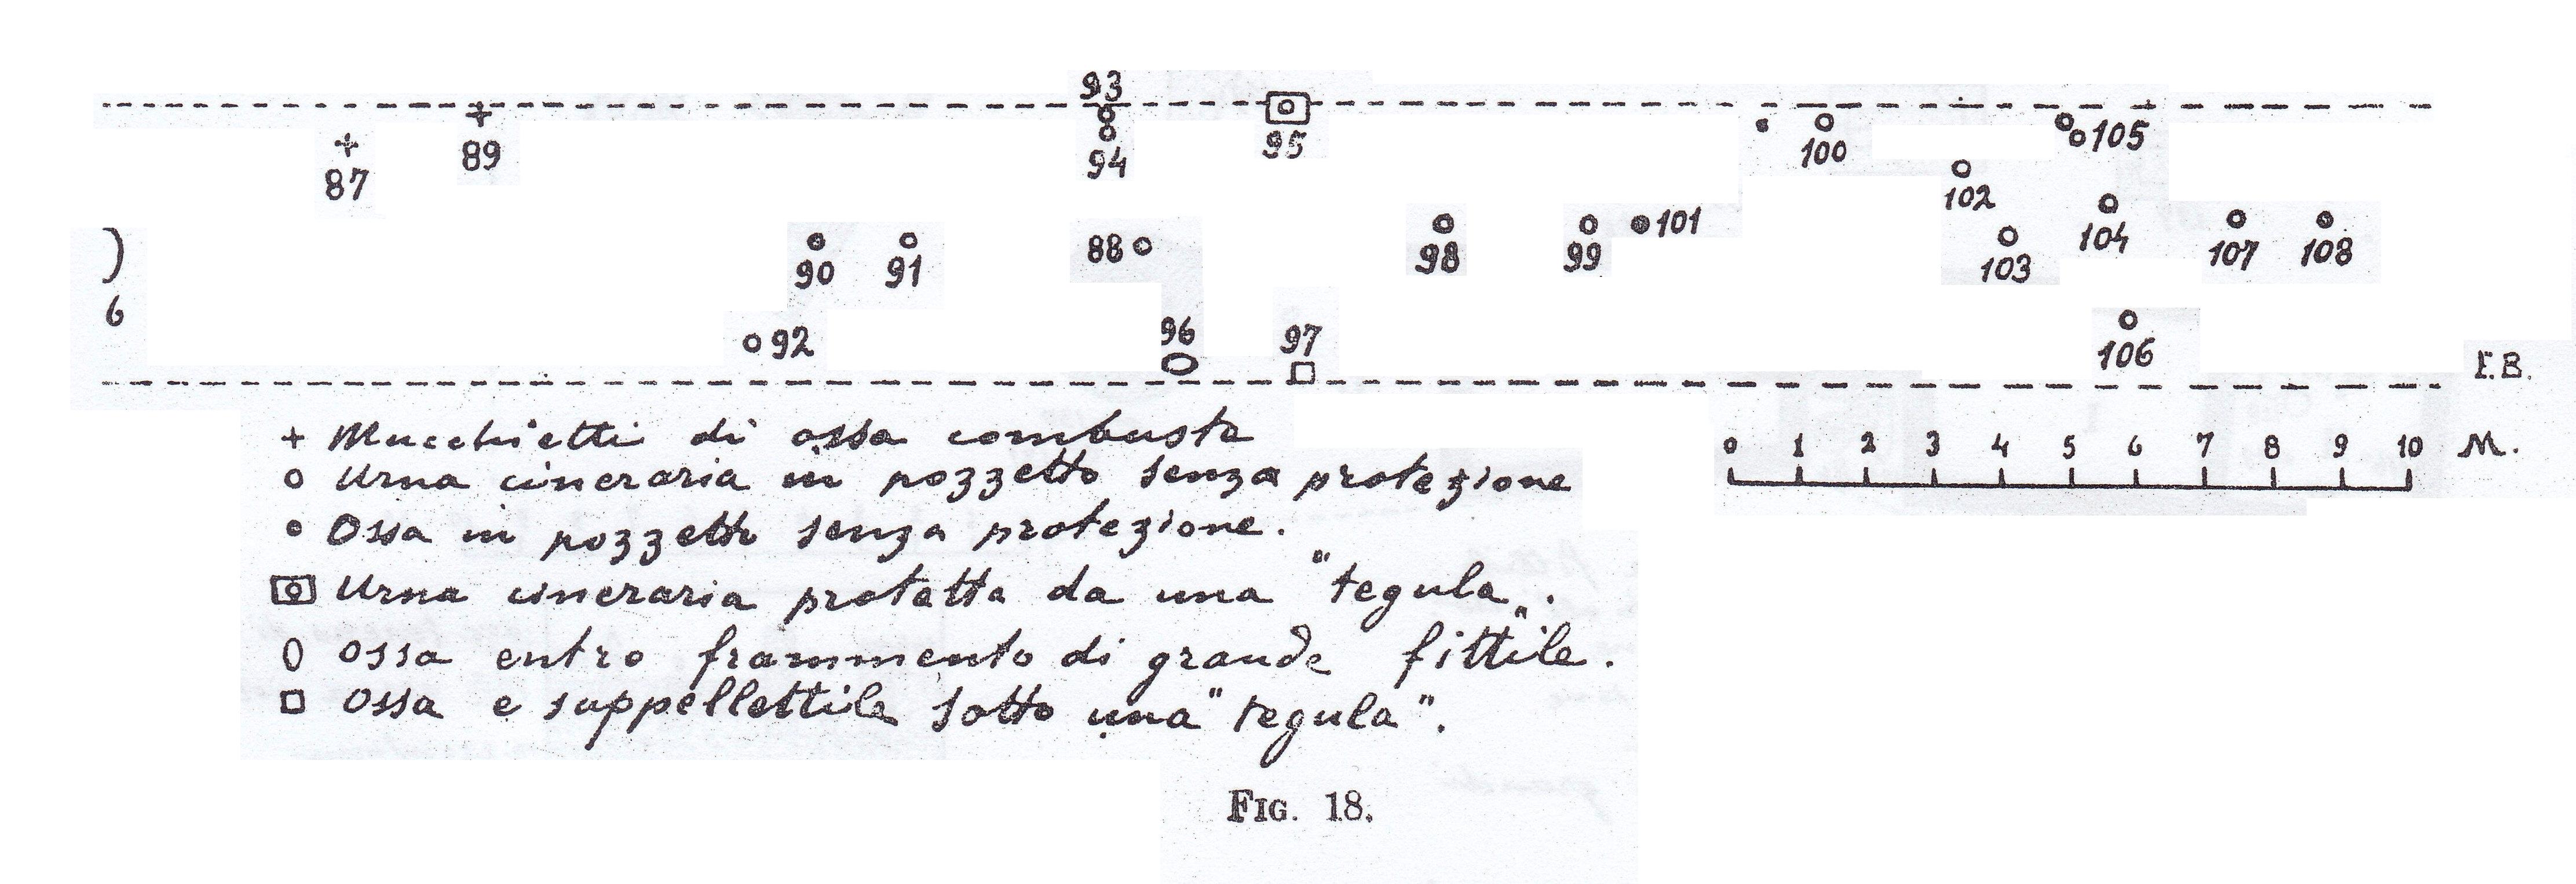 93
89
87
94
95
100
105
102
101
98
99
103
104
107
108
88
90
91
6
92
96
97
106
F.B.
+ Mucchietti di ossa combuste
o Urna cineraria in pozzetto senza protezione
Ossa in pozzetto senza protezione.
Urna cineraria protetta da una "tegula".
Ossa entro frammento di grande fittile.
Ossa e suppellettile sotto una "tegula".
0 1 2 3 4 5 6 7 8 9 10 M.
FIG. 18.